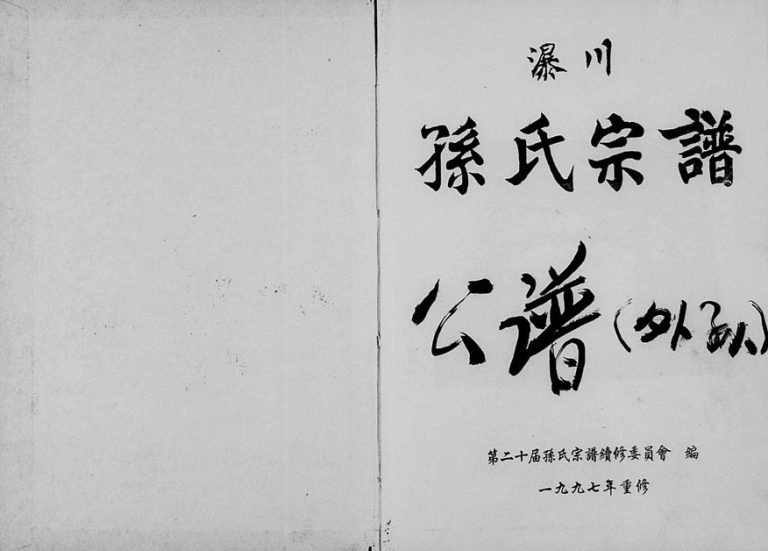 瀑川
孫氏宗譜
公谱(外孙)
第二十届孫氏宗譜續修委員會 編
一九九七年重修